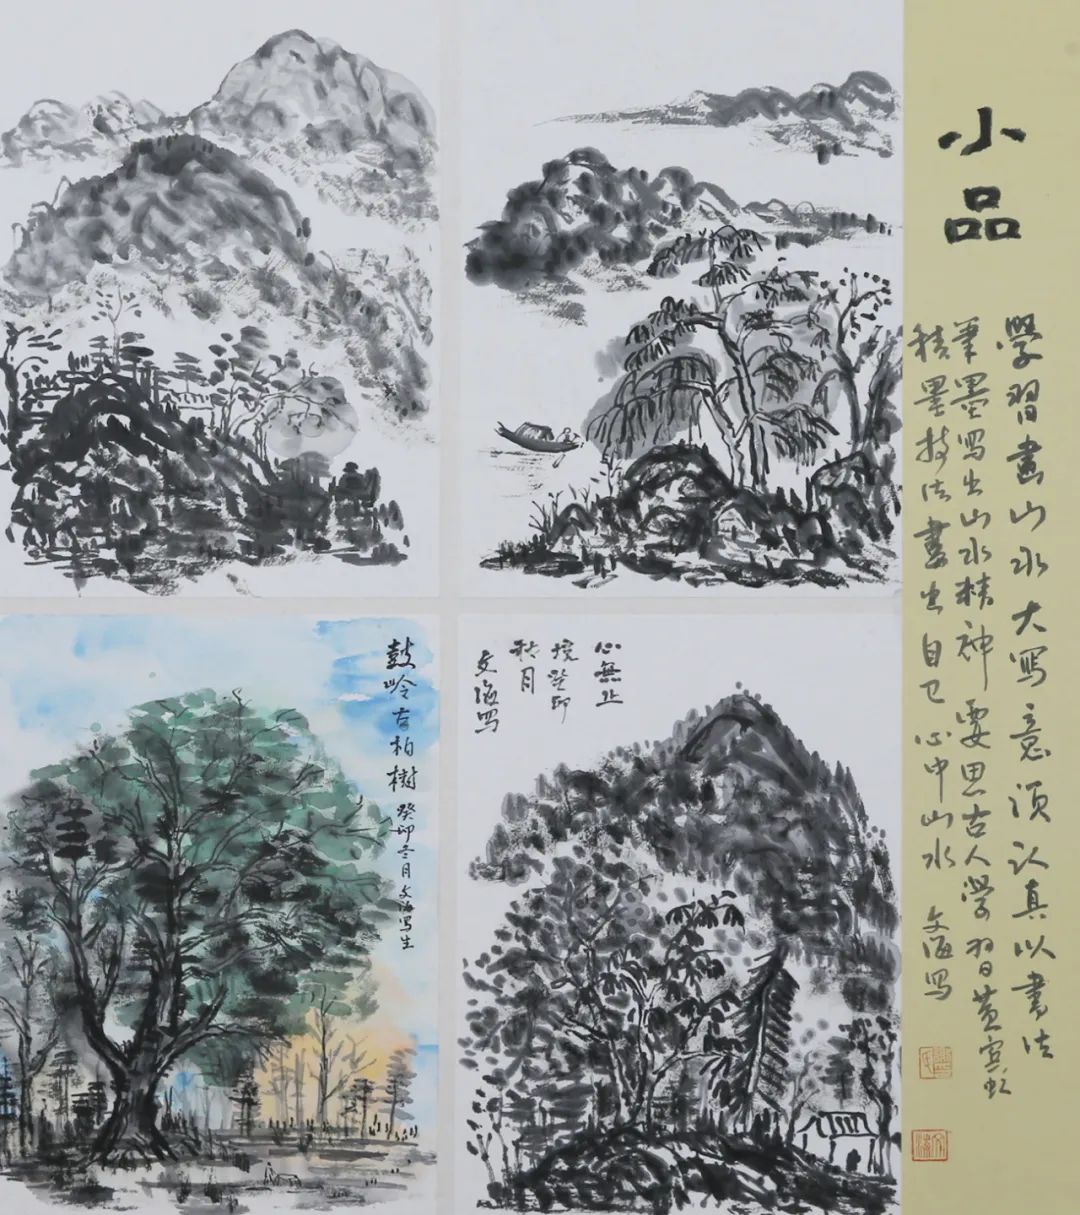 小品
學習畫山水大写意須认真以書法
筆墨写出山水精神要思古人學習黄宾虹
積墨技法畫出自己心中山水 文海写
鼓岭古柏樹
癸卯冬月文海写生
心無止
境癸卯
秋月
文海写